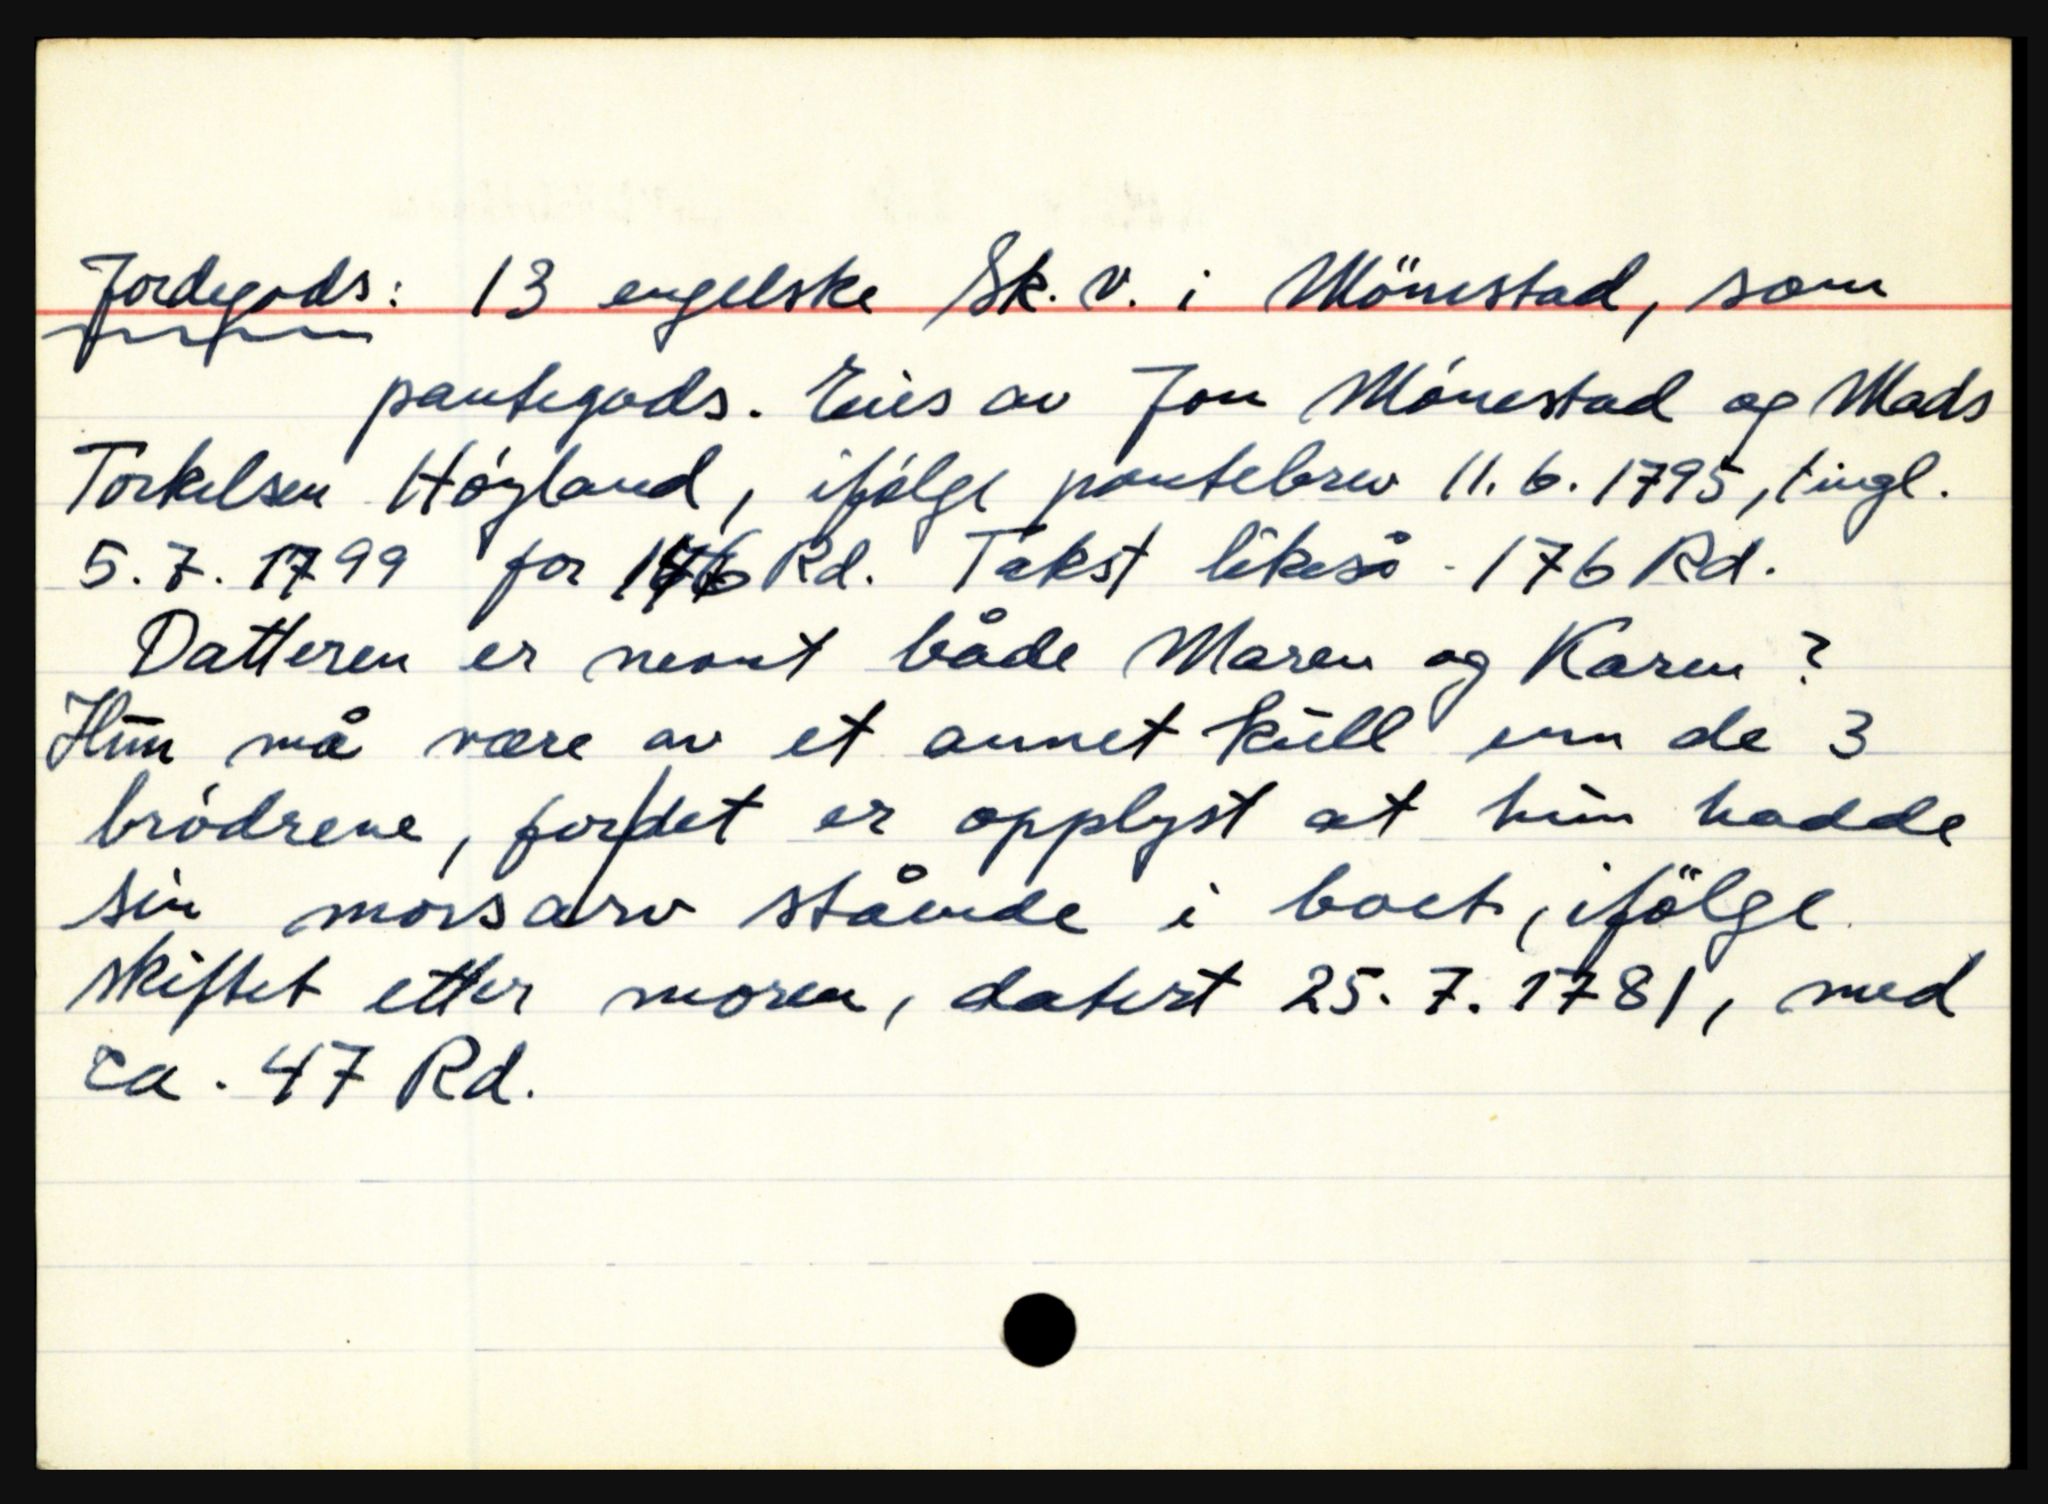 Jordegods: 13 engelske Sk. v. i Mönestad, som
pantegods. Eies av Jon Mónestad og Mads
Torkelsen Hógland, ifólge pantebrev 11.6.1795, tingl.
5.7.1799 for 176 Rd. Takst likeså 176 Rd.
Datteren er nevnt både Maren og Karen?
Hun må være av et annet kull enn de 3
bródrene, for det er opplyst at hun hadde
sin morsarv stående i boet, ifölge
skiftet etter moren, datert 25.7.1781, med
ca. 47 Rd.